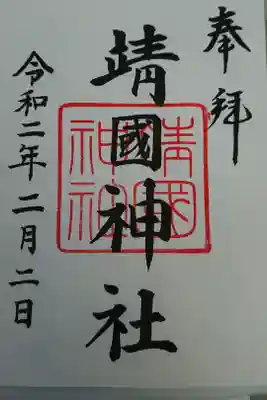 奉拝
靖國神社
靖国神社
令和二年二月二日